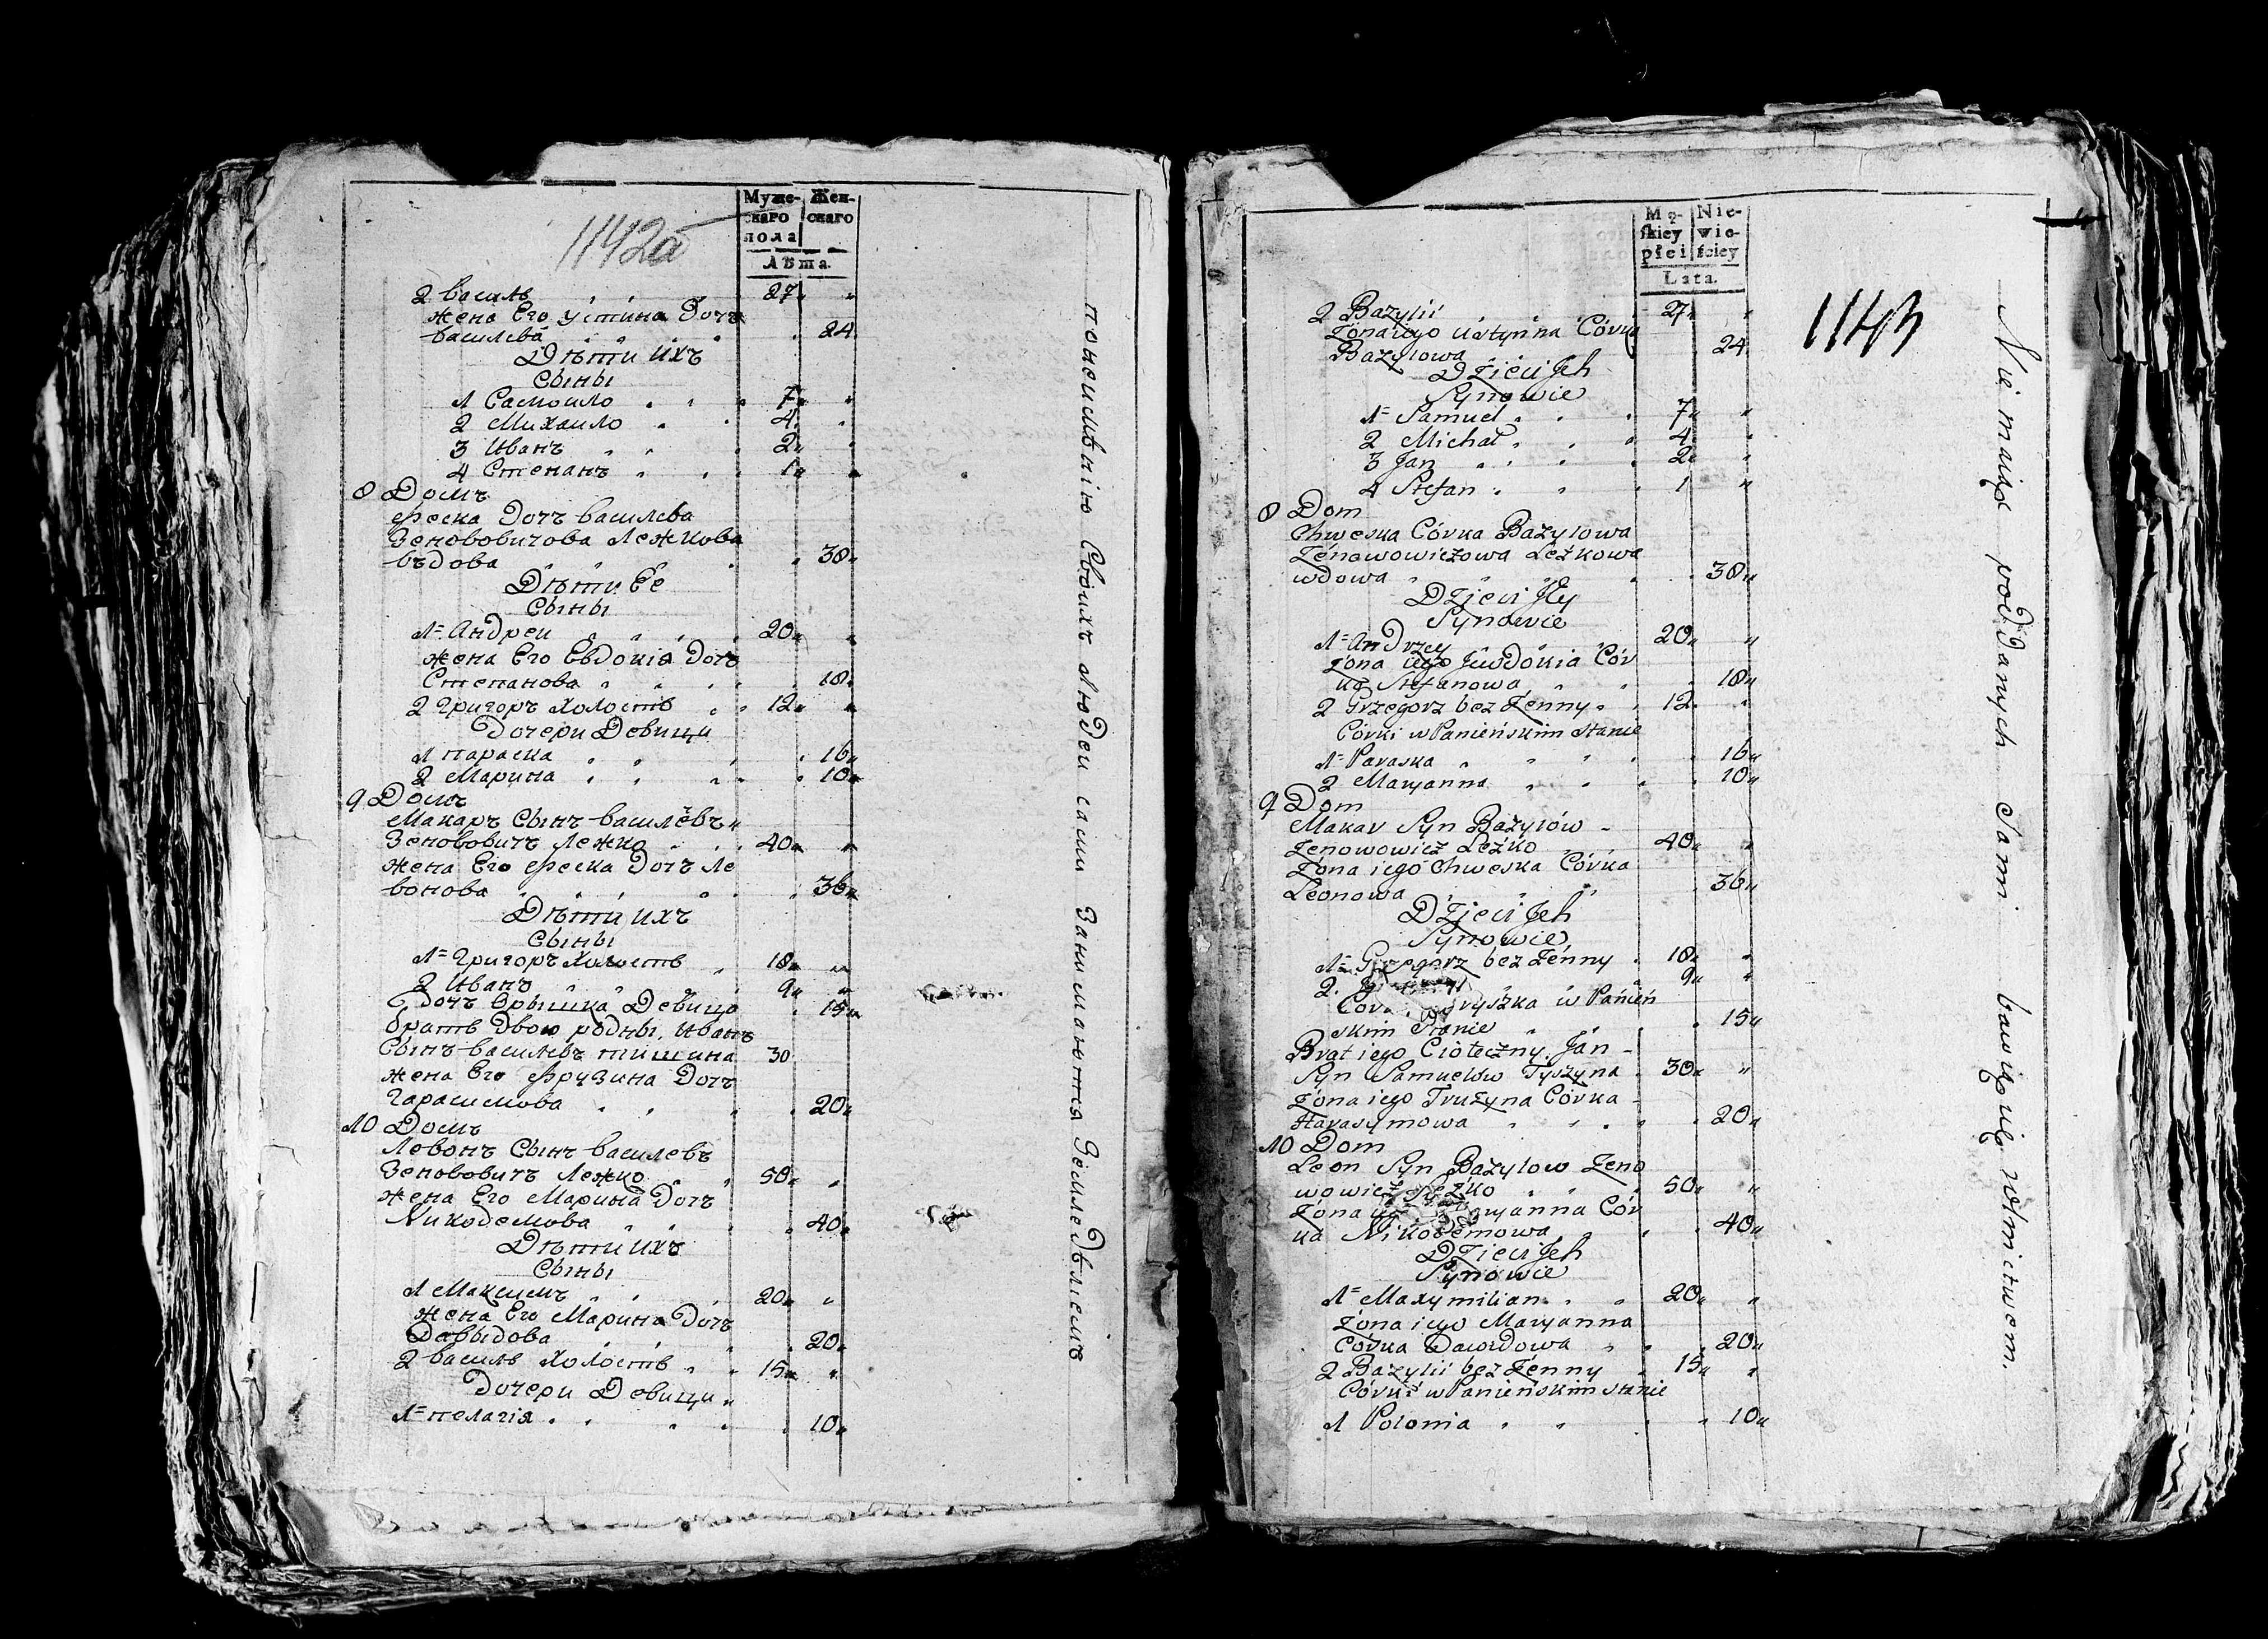 1142а
Муже- Жен-
скаго скаго
пола
Лѣта.
2 василь 27
жена Его устина Дочь
василева 24
Дѣти ихъ
Сыны
1 Самоило 7
2 Михаило 4
3 Иванъ 2
4 Степанъ 1
8 Домъ
феска Дочь василева
Зенововичова Лежкова
въдова 38
Дѣти Ее
Сыны
1 Андреи 20
жена Его Евдокіа Дочь
Степанова 18
2 Григоръ холостъ 12
Дочери Девици
1 параска 16
2 Марина 10
9 Домъ
Макаръ Сынъ василёвъ
Зенововичъ Лежко 40
жена Его феска Дочь Ле
вонова 36
Дѣти ихъ
Сыны
1 Григоръ холостъ 18
2 Иванъ 9
дочь Орышка Девица 15
братъ двою родны, Иванъ
Сынъ василевъ тишина 30
жена Его Фрузина Дочь
гарасимова 20
10 Домъ
Левонъ Сынъ василевъ
Зенововичъ Лежко 50
жена Его Марина Дочь
Никодемова 40
Дѣти ихъ
Сыны
1 Максимъ 20
жена Его Марина Дочь
Давыдова 20
2 василь холостъ 15
Дочери Девици
1 пелагія 10
понеимѣнію Своихъ людеи сами Занимаются Земледѣлиемъ
Mę- Nie-
skiey wie-
płci ściey
Lata.
1143
2 Bazylii 27
Zona iego Ustynna Córka
Bazylowa 24
Dzieci Jch
Synowie
1 Samuel 7
2 Michał 4
3 Jan 2
4 Stefan 1
8 Dom
Chweska Córka Bazylowa
Zenowowiczowa Leżkowa
wdowa 38
Dzieci Jey
Synowie
1 Andrzey 20
Zona iego Jewdokia Cór
ka Stefanowa 18
2 Grzegorz bez Zenny 12
Córki w Panieńskim stanie
1 Paraska 16
2 Maryanna 10
9 Dom
Makar Syn Bazylów
Zenowowicz Leżko 40
Zona iego Chweska Córka
Leonowa 36
Dzieci Jch
Synowie
1 Grzegorz bez Zenny 18
2. 9
w Panień
skim Stanie 15
Brat iego Cioteczny Jan
Syn Samuelów Tyszyna 30
Zona iego Truzyna Córka
Harasymowa 20
10 Dom
Leon Syn Bazylow Zeno
wowicz Leżko 50
Zona Maryanna Cór
ka Nikodemowa 40
Dzieci Jch
Synowie
1 Maxymilian 20
Zona iego Maryanna
Córka Dawidowa 20
2 Bazylii bez Zenny 15
Córki w Panieńskim stanie
1 Polonia 10
Nie maiąc poddanych Sami bawią się rolnictwem.